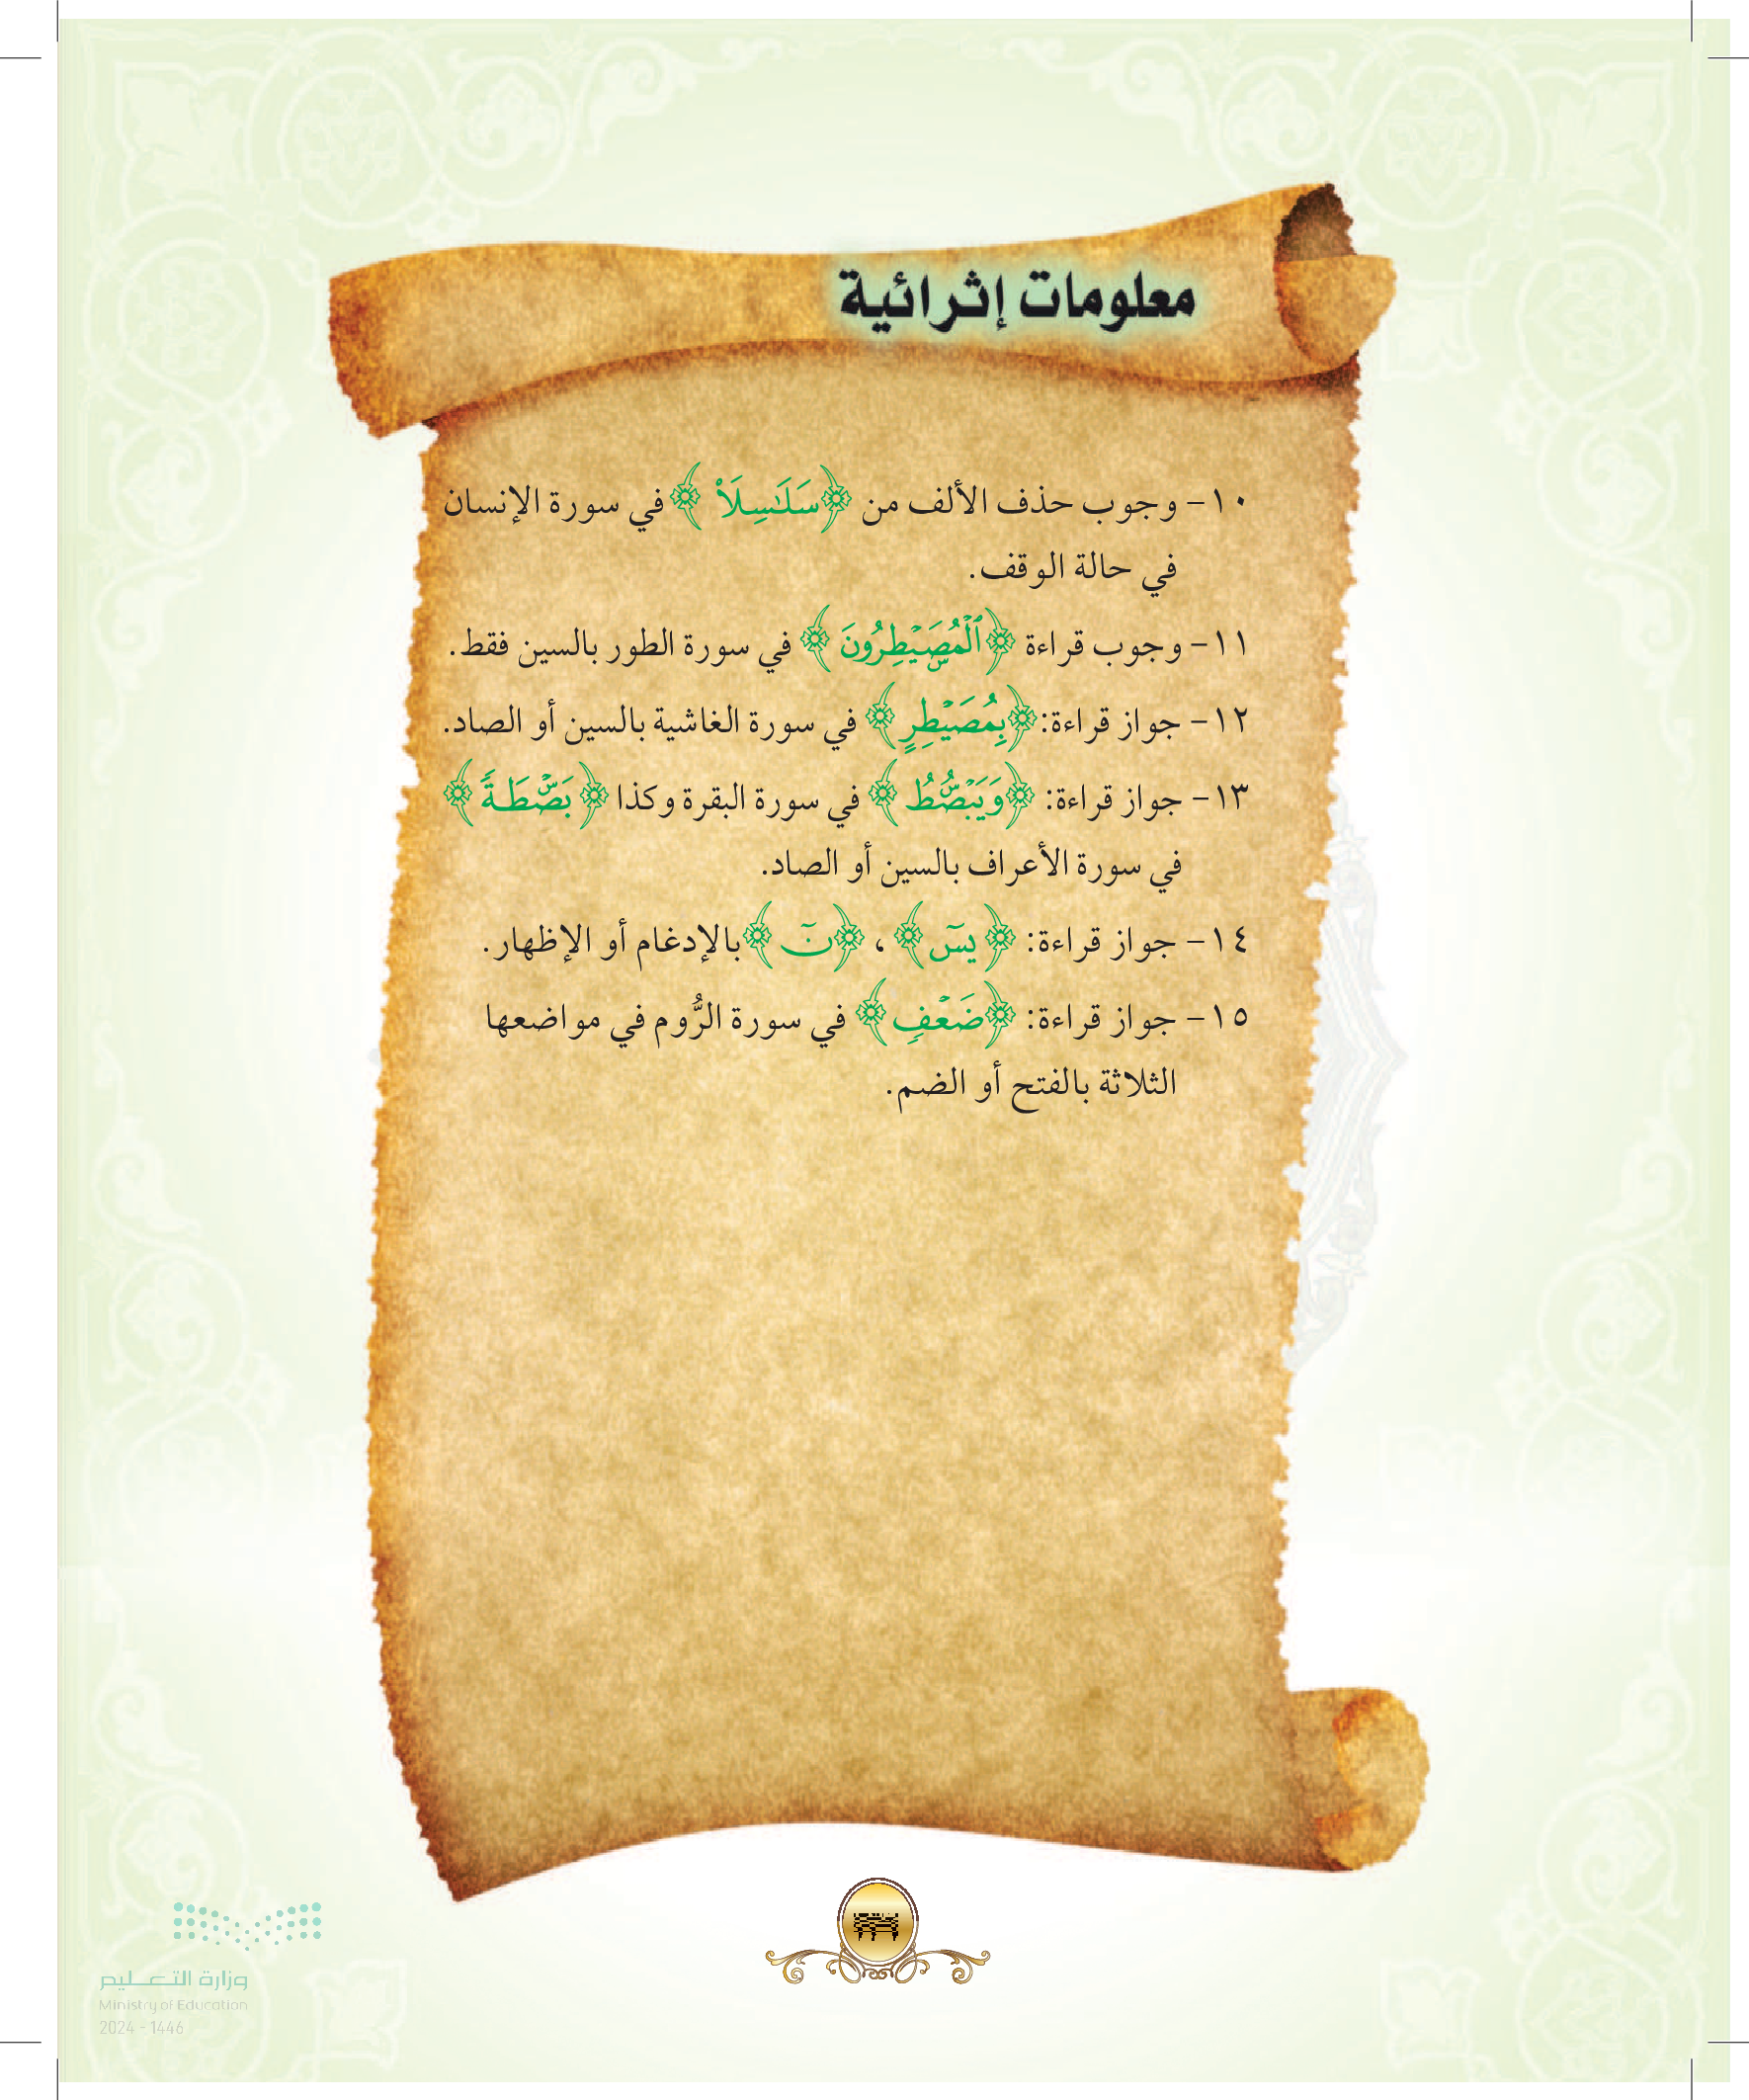 معلومات إثرائية
١٠- وجوب حذف الألف من ﴿سَلَٰسِلَاْ﴾ في سورة الإنسان
في حالة الوقف.
١١- وجوب قراءة ﴿ٱلْمُصَۜيْطِرُونَ﴾ في سورة الطور بالسين فقط.
١٢- جواز قراءة: ﴿بِمُصَيْطِرٍ﴾ في سورة الغاشية بالسين أو الصاد.
١٣- جواز قراءة: ﴿وَيَبْصُۜطُ﴾ في سورة البقرة وكذا ﴿بَصْۜطَةً﴾
في سورة الأعراف بالسين أو الصاد.
١٤- جواز قراءة: ﴿يسٓ﴾ ، ﴿نٓ﴾ بالإدغام أو الإظهار.
١٥- جواز قراءة: ﴿ضَعْفٍ﴾ في سورة الرُّوم في مواضعها
الثلاثة بالفتح أو الضم.
وزارة التعـــليم
Ministry of Education
2024 - 1446